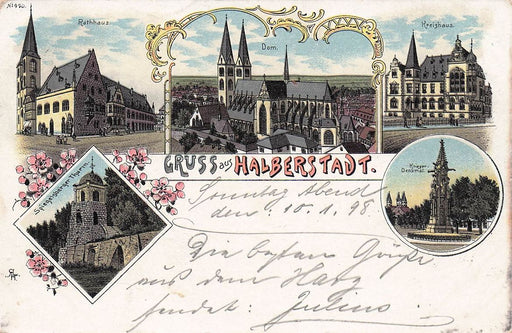 No 490.
Rathhaus.
Dom.
Kreishaus.
GRUSS aus HALBERSTADT.
Krieger-
Denkmal.
Sonntag Abend
den 10.1.98
Die besten Grüße
aus dem Harz
sendet: Julius